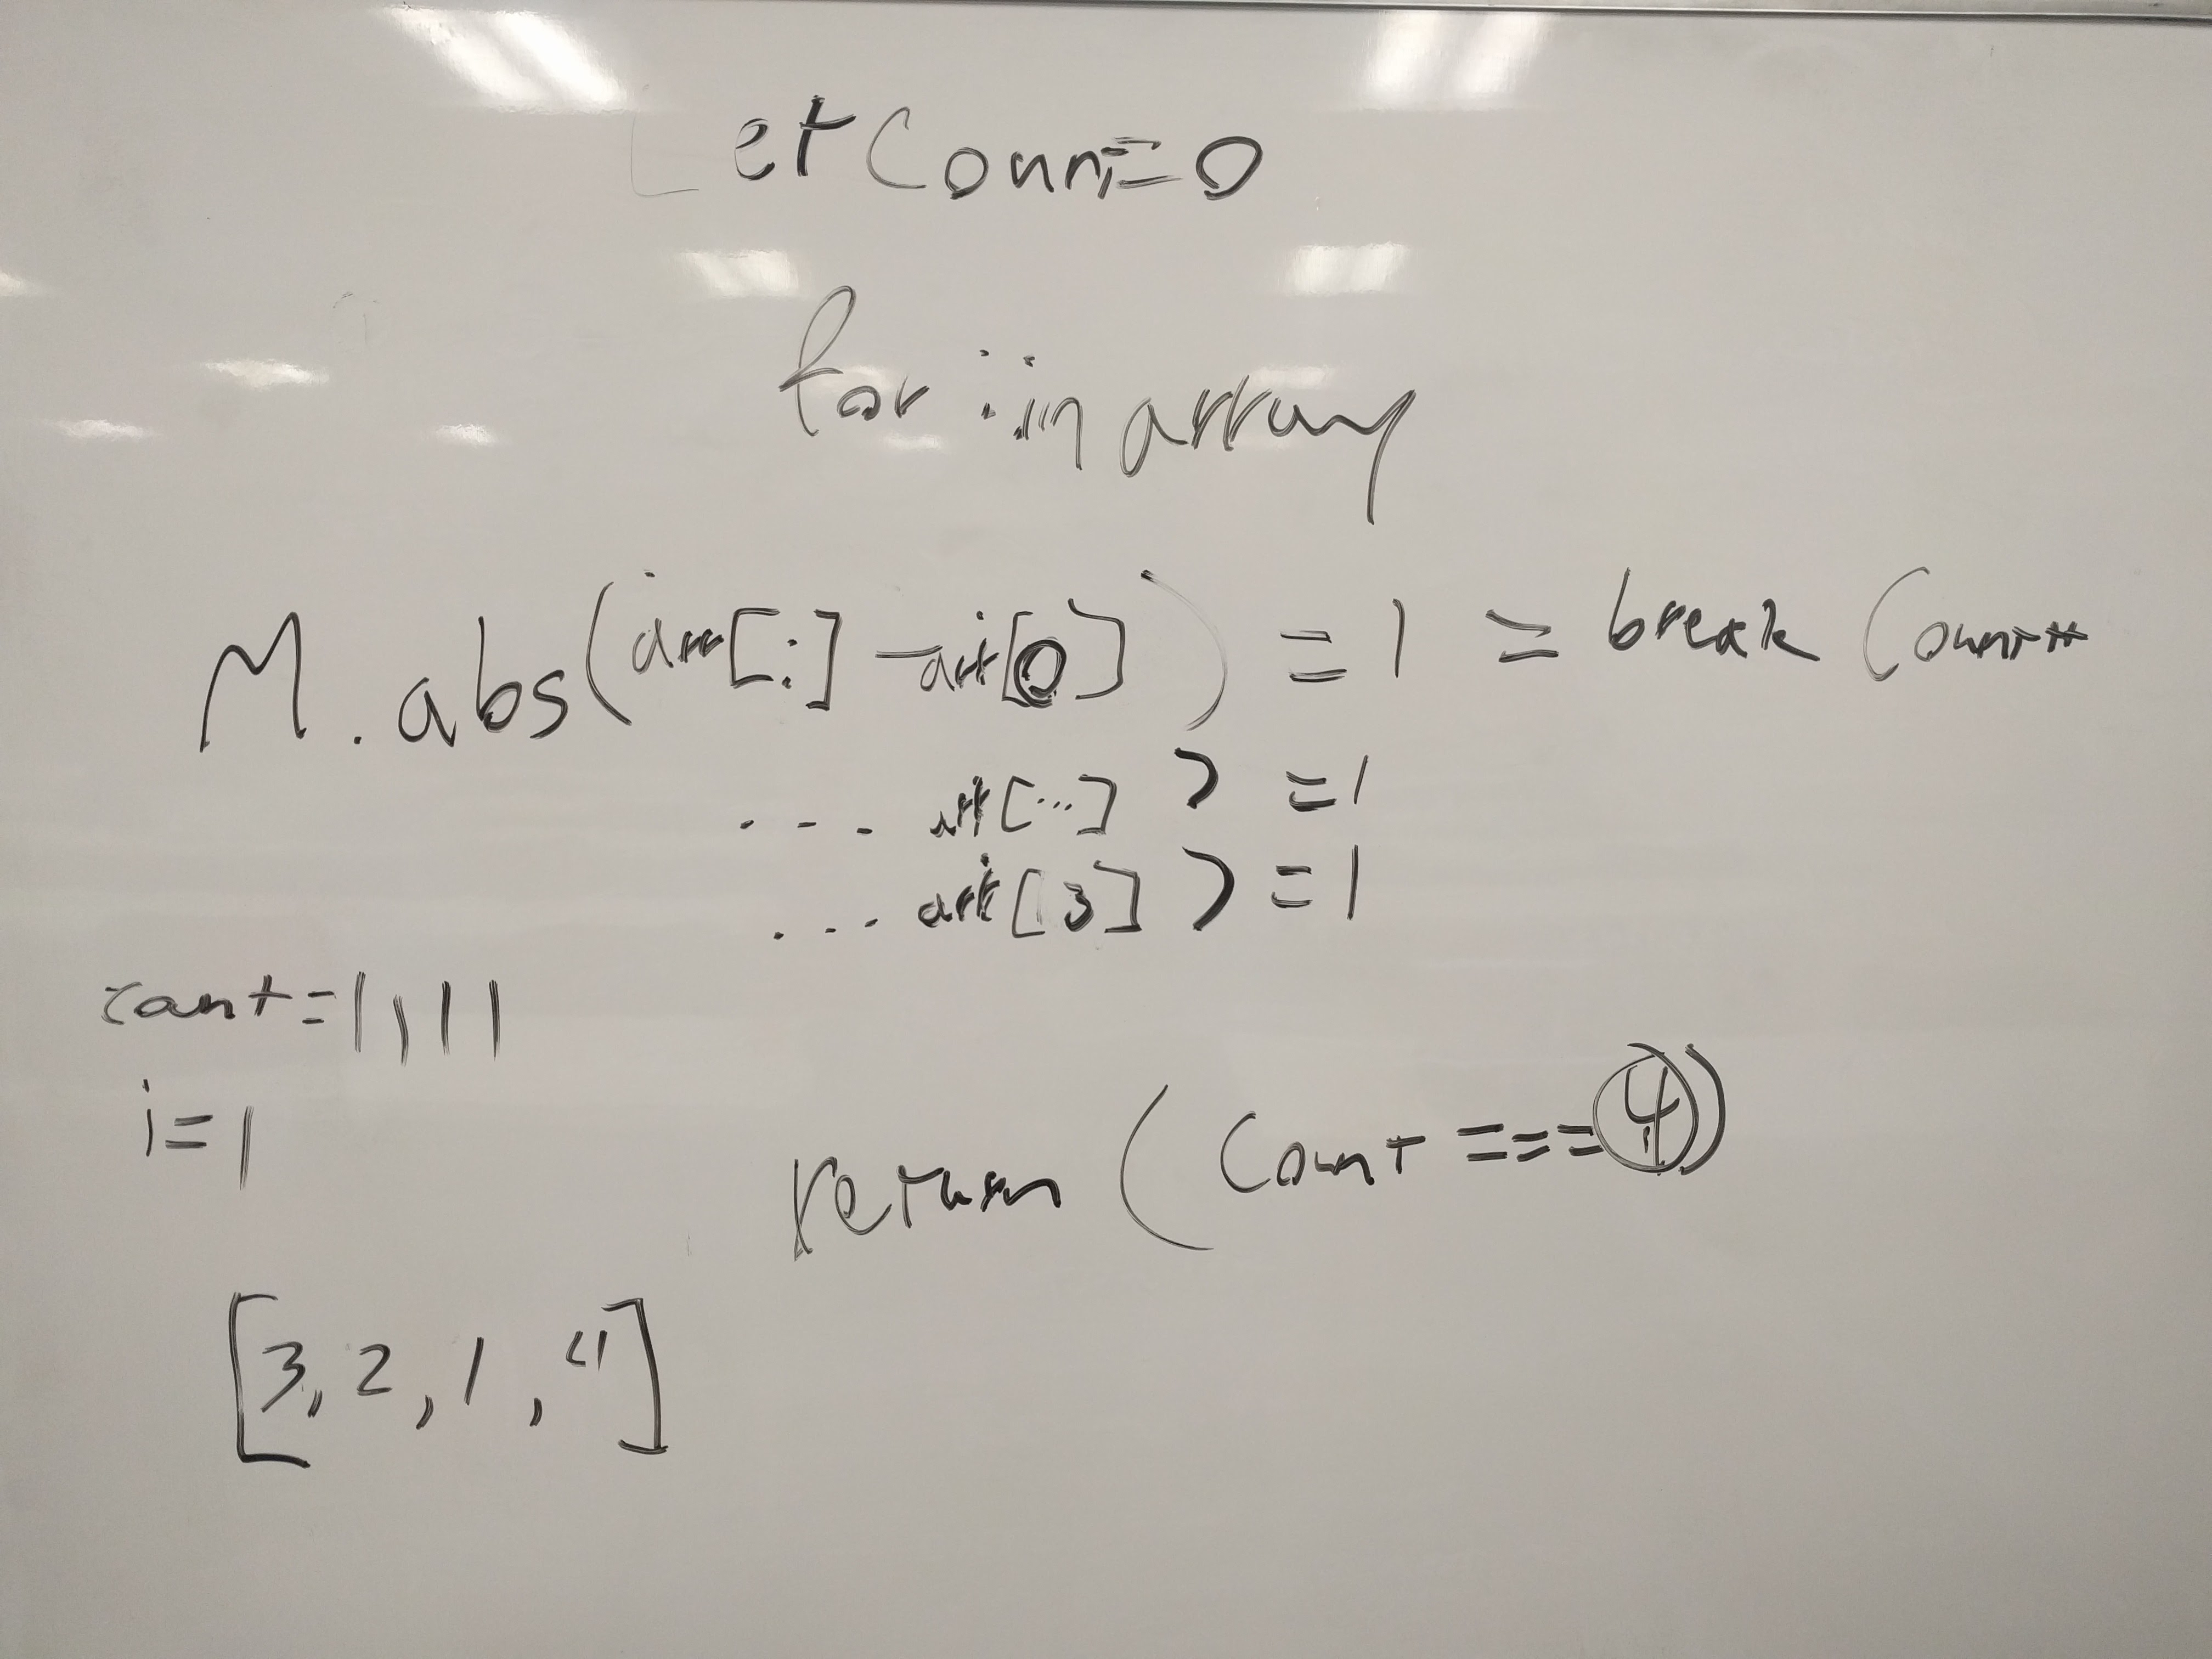 Let Count=0
for i in array
M.abs(arr[i] - arr[0]) = 1 = break Count++
... arr[...] ) = 1
... arr[3] ) = 1
count = 1, 1 1
i = 1
return (Count === 4)
[3, 2, 1, 4]